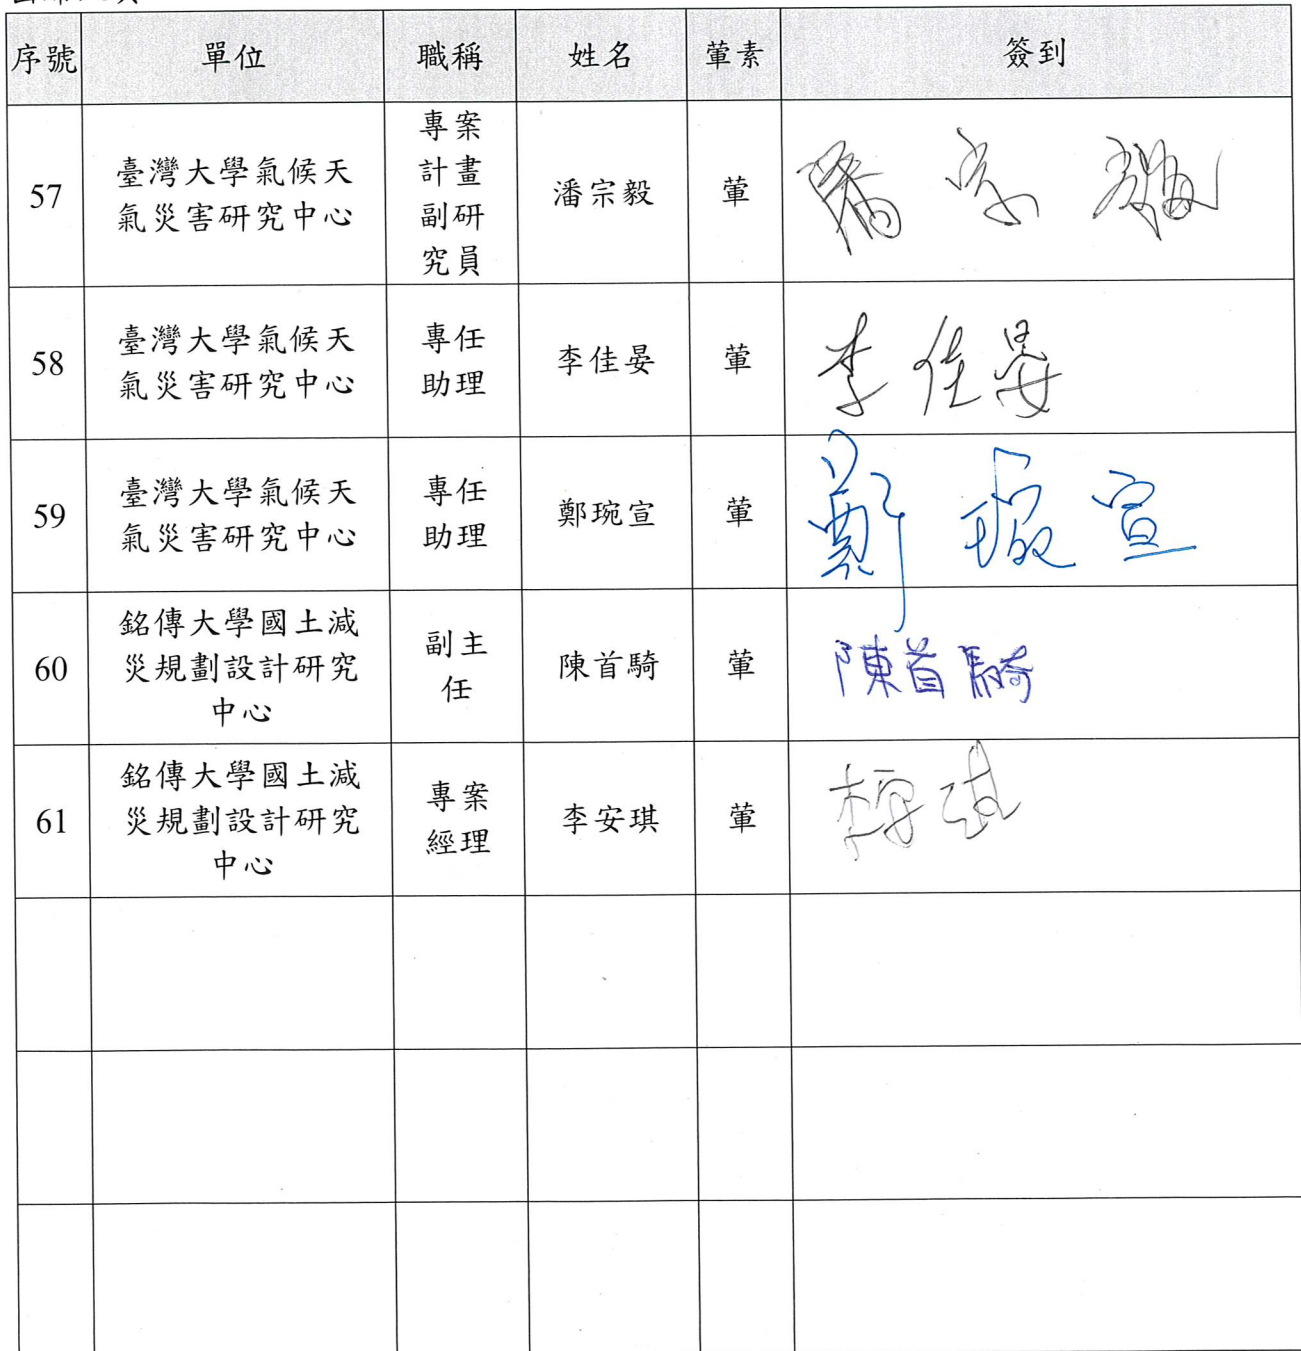 序號 單位 職稱 姓名 葷素 簽到
57 臺灣大學氣候天氣災害研究中心 專案計畫副研究員 潘宗毅 葷 潘宗毅
58 臺灣大學氣候天氣災害研究中心 專任助理 李佳晏 葷 李佳晏
59 臺灣大學氣候天氣災害研究中心 專任助理 鄭琬宣 葷 鄭琬宣
60 銘傳大學國土減災規劃設計研究中心 副主任 陳首騎 葷 陳首騎
61 銘傳大學國土減災規劃設計研究中心 專案經理 李安琪 葷 李安琪